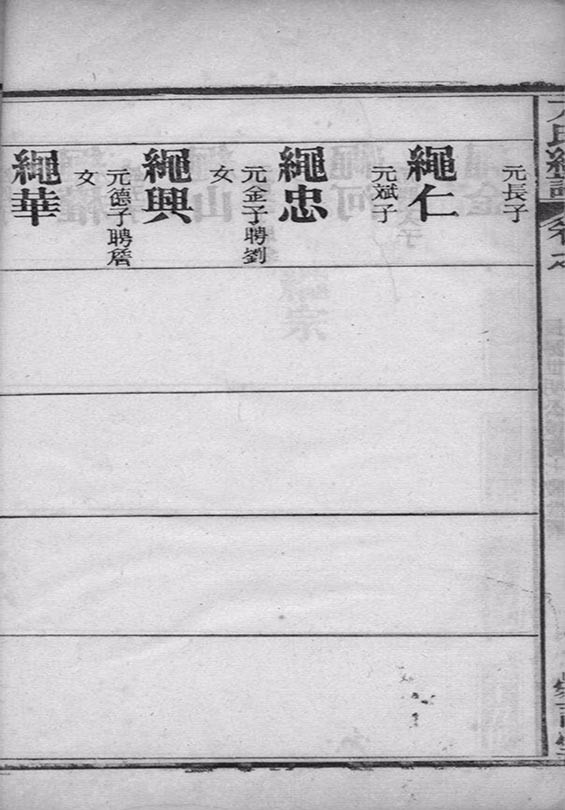 元長子
繩仁
元斌子
繩忠
元金子聘劉
女
繩興
元德子聘詹
女
繩華